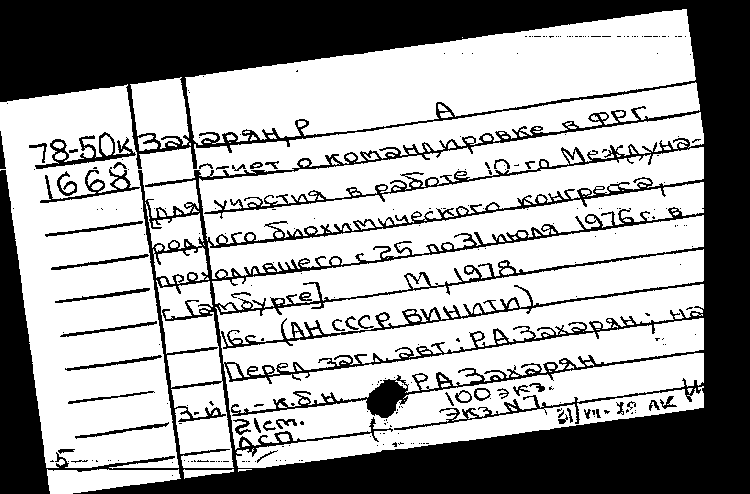 78-50к Захарян, Р А
1668 Отчет о командировке в ФРГ.
[для участия в работе 10-го Междуна-
родного биохимического конгресса,
проходившего с 25 по 31 июля 1976 г. в
г. Гамбурге]. М., 1978.
16с. (АН СССР. ВИНИТИ).
Перед загл. авт.: Р.А. Захарян.; на
3-й с. - к.б.н. Р.А. Захарян.
21см. 100 экз.
ДСП. Экз. N 7.
5